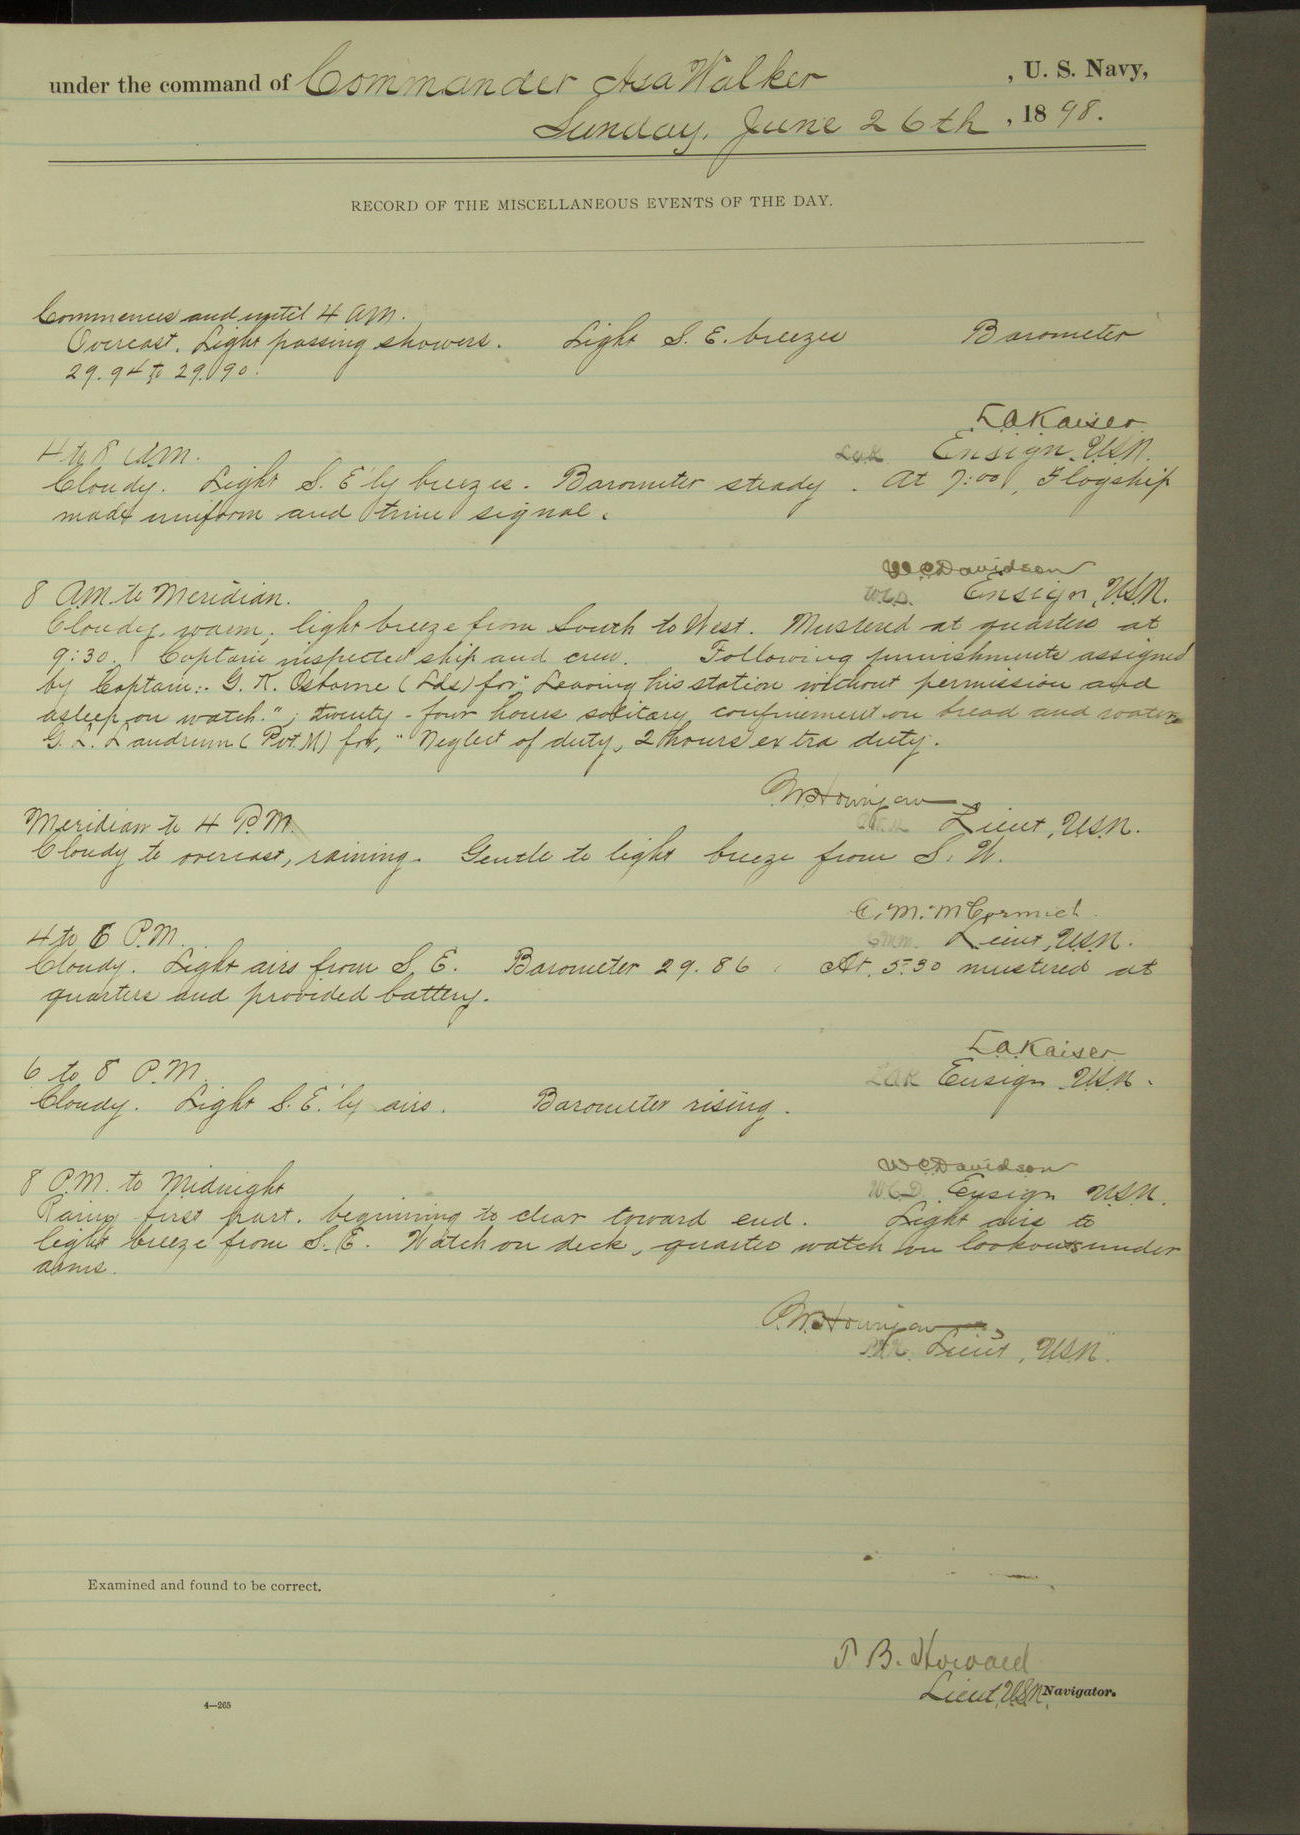 under the command of Commander Asa Walker , U. S. Navy,
Sunday, June 26th , 1898.
RECORD OF THE MISCELLANEOUS EVENTS OF THE DAY.
Commences and until 4 AM.
Overcast. Light passing showers. Light S. E. breezes Barometer
29.94 to 29.90.
L A Kaiser
4 to 8 AM. LAK Ensign. USN.
Cloudy. Light S. E'ly breezes. Barometer steady. At 7:00, Flagship
made uniform and time signal.
W C Davidson
8 AM. to Meridian. W.C.D. Ensign, USN.
Cloudy, warm, light breeze from South to West. Mustered at quarters at
9:30. Captain inspected ship and crew. Following punishments assigned
by Captain:. G. K. Osborne (Lds) for "Leaving his station without permission and
asleep on watch."; twenty-four hours solitary confinement on bread and water
G. L. Landrum (Pvt. M) for, "Neglect of duty, 2 hours extra duty.
Meridian to 4 P.M. Lieut, USN.
Cloudy to overcast, raining. Gentle to light breeze from S. W.
C. M. McCormick.
4 to 6 P.M. CMM. Lieut, USN.
Cloudy. Light airs from S. E. Barometer 29.86. At 5-30 mustered at
quarters and provided battery.
L A Kaiser
6 to 8 P.M. LAK Ensign USN.
Cloudy. Light S. E.'ly airs. Barometer rising.
W C Davidson
8 P.M. to Midnight W.C.D. Ensign USN.
Rainy first part, beginning to clear toward end. Light airs to
light breeze from S. E. Watch on deck, quarter watch on lookouts under
arms.
Lieut, USN.
Examined and found to be correct.
B. Howard
Lieut, USN, Navigator.
4—265